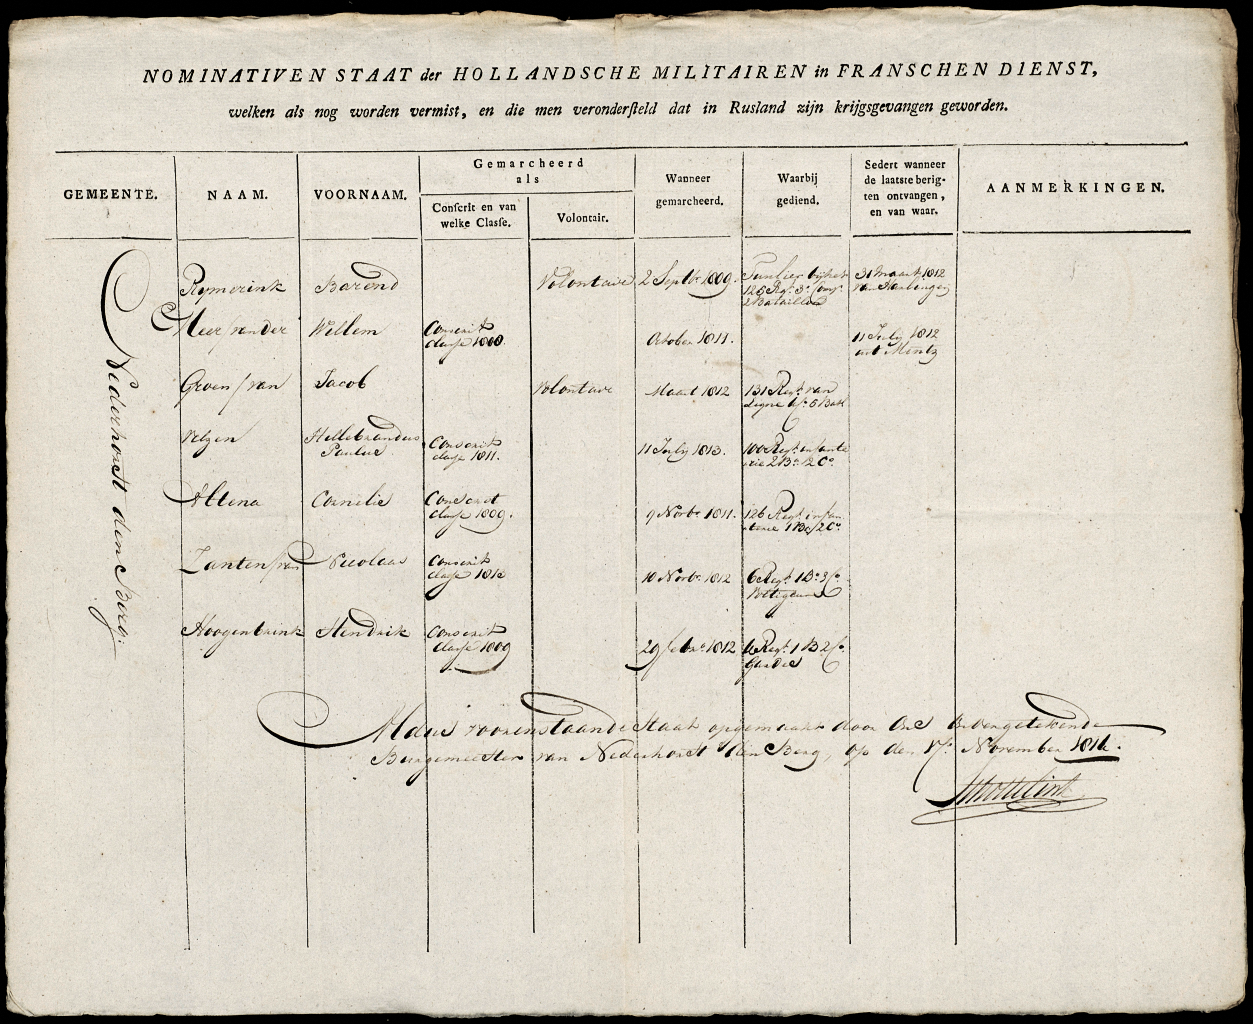 NOMINATIVEN STAAT der HOLLANDSCHE MILITAIREN in FRANSCHEN DIENST,
welken als nog worden vermist, en die men veronderſteld dat in Rusland zijn krijgsgevangen geworden.
GEMEENTE.
NAAM.
VOORNAAM.
Gemarcheerd
als
Conſcrit en van
welke Claſſe.
Volontair.
Wanneer
gemarcheerd.
Waarbij
gediend.
Sedert wanneer
de laatste berig-
ten ontvangen,
en van waar.
AANMERKINGEN.
Nederhorst den Berg.
Rymerink Barend Volontaire 2 Septbr 1809. Fuselier bij het 31 Maart 1812
125 Regt 3e Comp van
2 Bataillon
Meer / van der Willem Conscrit October 1811. 11 July 1812
classe 1808. uit Mintz
Groen / van Jacob Volontaire Maart 1812 131 Regt van
Ligne 5 Bat
Velzen Hillebrandus Conscrit 11 July 1813. 100 Regt infante
Paulus classe 1811. rie 2 Bn 2 Co
Altena Cornelis Conscrit 9 Novbr 1811. 126 Regt infan
classe 1809. terie 1 Bn 2 Co
Zanten / van Nicolaas Conscrit 10 Novbr 1812 6 Regt 1 Bn 3 Co
classe 1813
Hoogenbrink Hendrik Conscrit 29 Febr 1812 Regt 1 B 2 Co
classe 1809 Gardes
Aldus voorenstaande Staat opgemaakt door Ons Ondergetekende
Burgemeester van Nederhorst den Berg, op den November 1814.